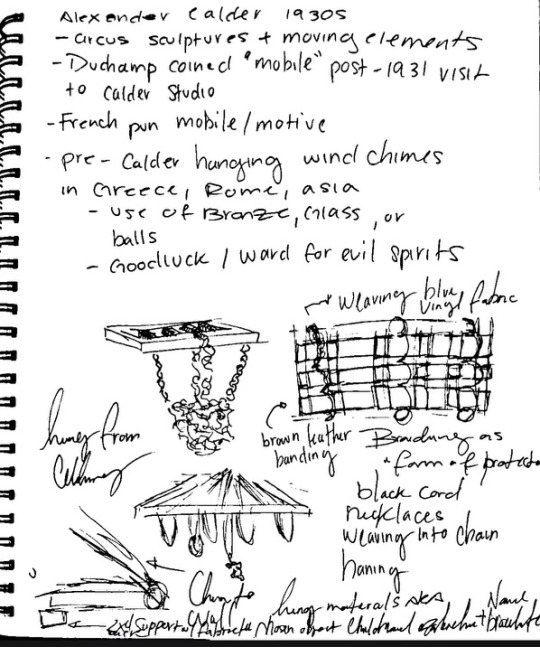 Alexander Calder 1930s
- circus sculptures + moving elements
- Duchamp coined "mobile" post-1931 visit
to Calder Studio
- French pun mobile/motive
- pre-Calder hanging wind chimes
in Greece, Rome, asia
- use of Bronze, Glass, or
balls
- Goodluck / ward for evil spirits
weaving blue
vinyl fabric
hung from
brown leather
banding
as
form of
black cord
necklaces
weaving into chain
haning
hung materials AKA
support chosen object